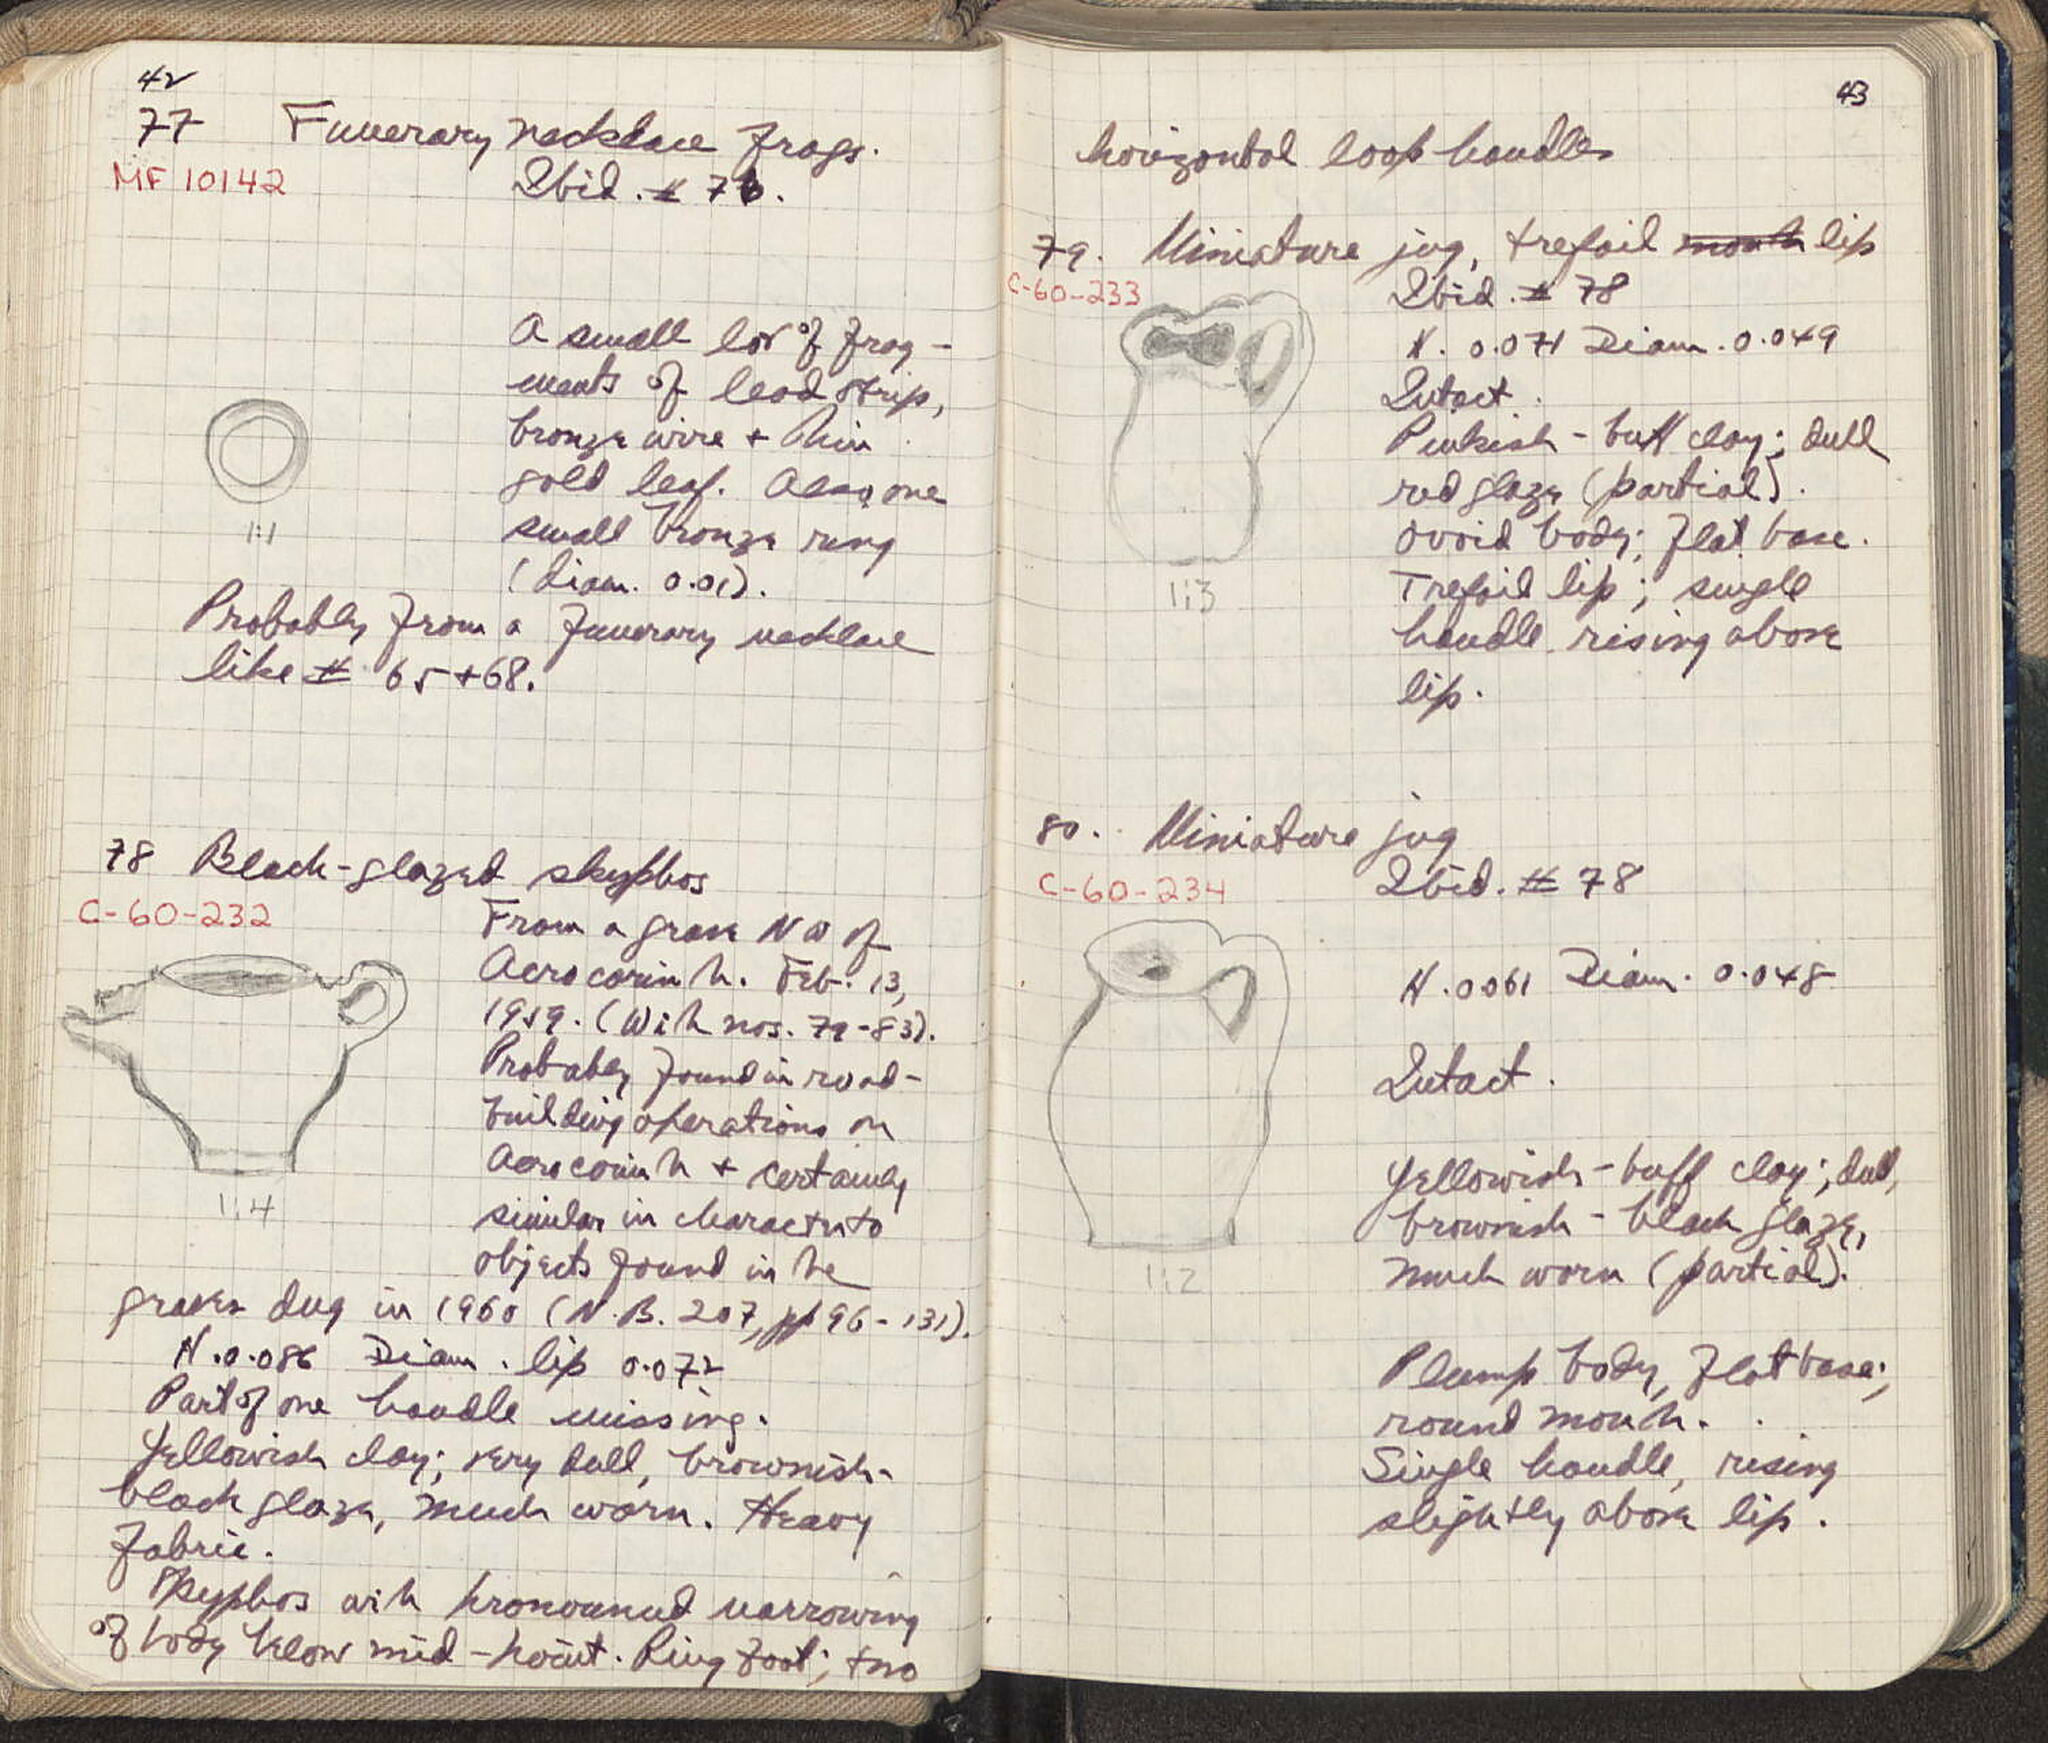 42
77 Funerary necklace frags.
MF 10142
Ibid. # 76.
A small lot of frag-
ments of lead strip,
bronze wire + thin
gold leaf. Also, one
small bronze ring
(diam. 0.01).
1:1
Probably from a funerary necklace
like # 65 + 68.
78 Black-glazed skyphos
C-60-232
From a grave NW of
Acrocorinth. Feb. 13,
1959. (With nos. 79-83).
Probably found in road-
building operations on
Acrocorinth + certainly
similar in character to
objects found in the
1:4
graves dug in 1960 (N.B. 207, pp 96-131).
H. 0.086 Diam. lip 0.072
Part of one handle missing.
Yellowish clay; very dull, brownish-
black glaze, much worn. Heavy
fabric.
Skyphos with pronounced narrowing
of body below mid-point. Ring foot; two
43
horizontal loop handles
79. Miniature jug, trefoil mouth lip
C-60-233
Ibid. # 78
H. 0.071 Diam. 0.049
Intact.
Pinkish-buff clay; dull
red glaze (partial).
Ovoid body; flat base.
Trefoil lip; single
handle rising above
lip.
1:3
80. Miniature jug
C-60-234
Ibid. # 78
H. 0.061 Diam. 0.048
Intact.
Yellowish-buff clay; dull,
brownish-black glaze,
much worn (partial).
1:2
Plump body, flat base;
round mouth.
Single handle, rising
slightly above lip.